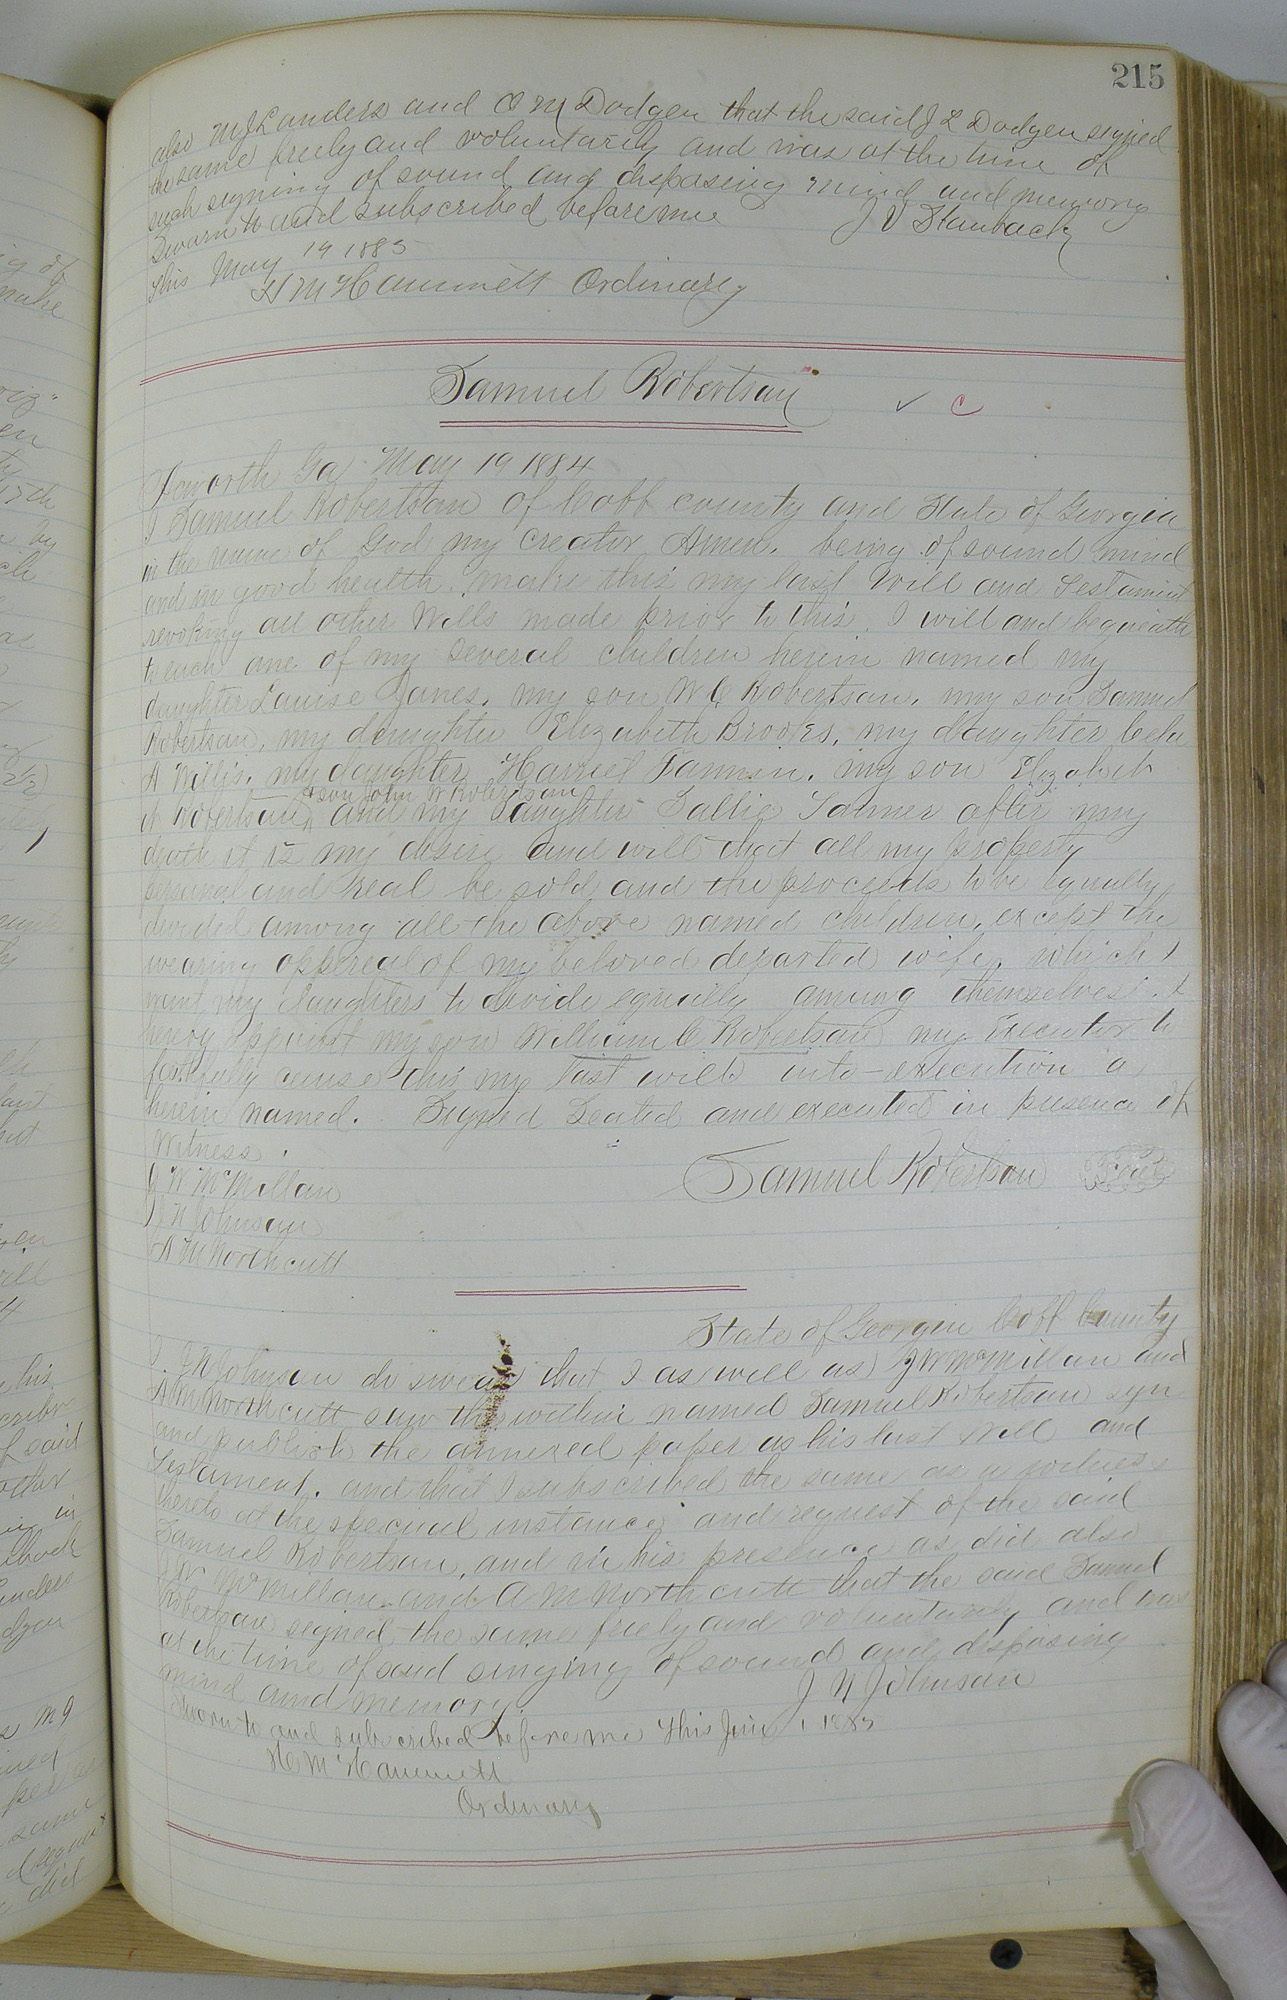 215
also M J Landers and O M Dodgen that the said J L Dodgen signed
the same freely and voluntarily and was at the time of
such signing of sound and disposing mind and memory
Sworn to and subscribed before me J V Stanback
this May 19 1885
H M Hammett Ordinary
Samuel Robertson
✓ C
Acworth Ga May 19 1884
I Samuel Robertson of Cobb county and State of Georgia
in the name of God my creator Amen. being of sound mind
and in good health, make this my last Will and Testament
revoking all other Wills made prior to this, I will and bequeath
to each one of my several children herein named my
daughter Louise Janes, my son W C Robertson, my son Samuel
Robertson, my daughter Elizabeth Brooks, my daughter Celia
A Willis, my daughter Harriet Fannin, my son Elizabeth
& son John W Robertson
A Robertson, and my daughter Sallie Tanner after my
death it is my desire and will that all my property
personal and real be sold and the proceeds to be equally
divided among all the above named children, except the
wearing appereal of my beloved departed wife, which I
want my daughters to divide equally among themselves. I
hereby appoint my son William C Robertson my Executor to
faithfully cause this my last will into execution as
herein named. Signed Sealed and executed in presence of
Witness.
J W McMillan
Samuel Robertson Seal
J N Johnson
A M Northcutt
State of Georgia Cobb County
I. J N Johnson do swear that I as well as J W McMillan and
A M Northcutt saw the within named Samuel Robertson sign
and publish the annexed paper as his last Will and
Testament. and that I subscribed the same as a witness
thereto at the special instance and request of the said
Samuel Robertson, and in his presence as did also
J W McMillan and A M Northcutt that the said Samuel
Robertson seigned the same freely and voluntarily and was
at the time of said singing of sound and disposing
mind and memory. J N Johnson
Sworn to and subscribed before me this June 1 1885
H M Hammett
Ordinary